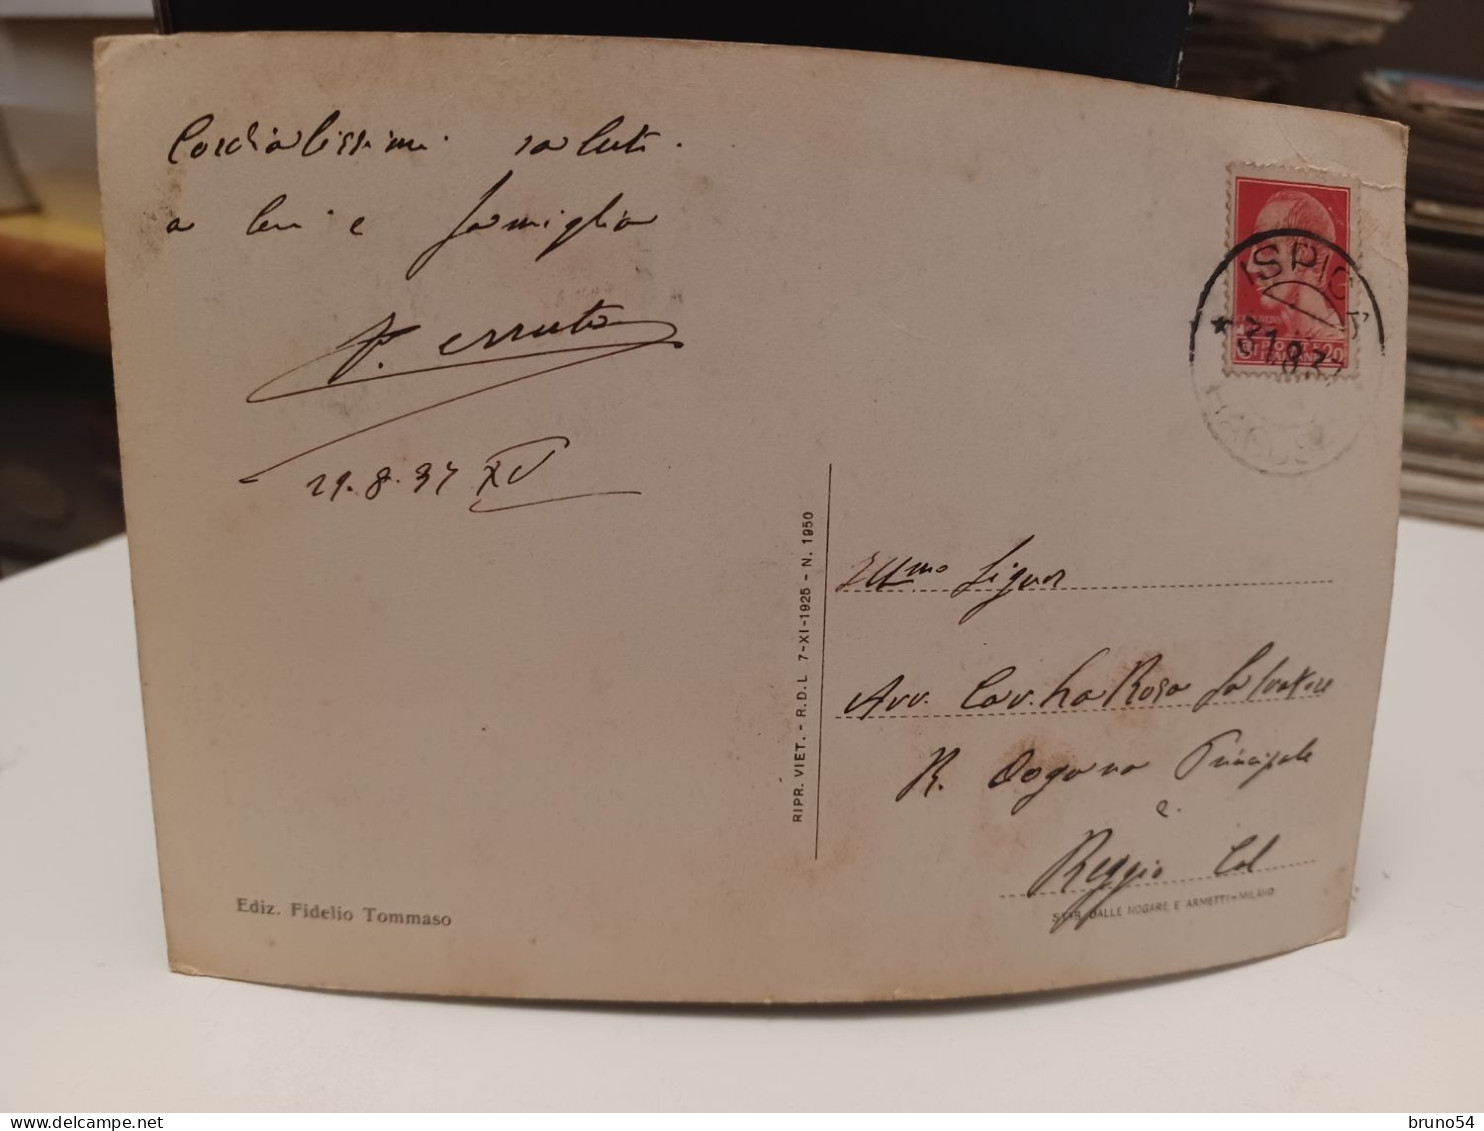 Cordialissimi saluti
a lei e famiglia
29.8.37 XV
ISPICA
31.8.37
RAGUSA
RIPR. VIET. - R.D.L 7-XI-1925 - N. 1950
Ill.mo Signor
Avv. Cav. La Rosa Salvatore
R. Dogana Principale
Reggio Cal
Ediz. Fidelio Tommaso
STAB. DALLE NOGARE E ARMETTI-MILANO
bruno54